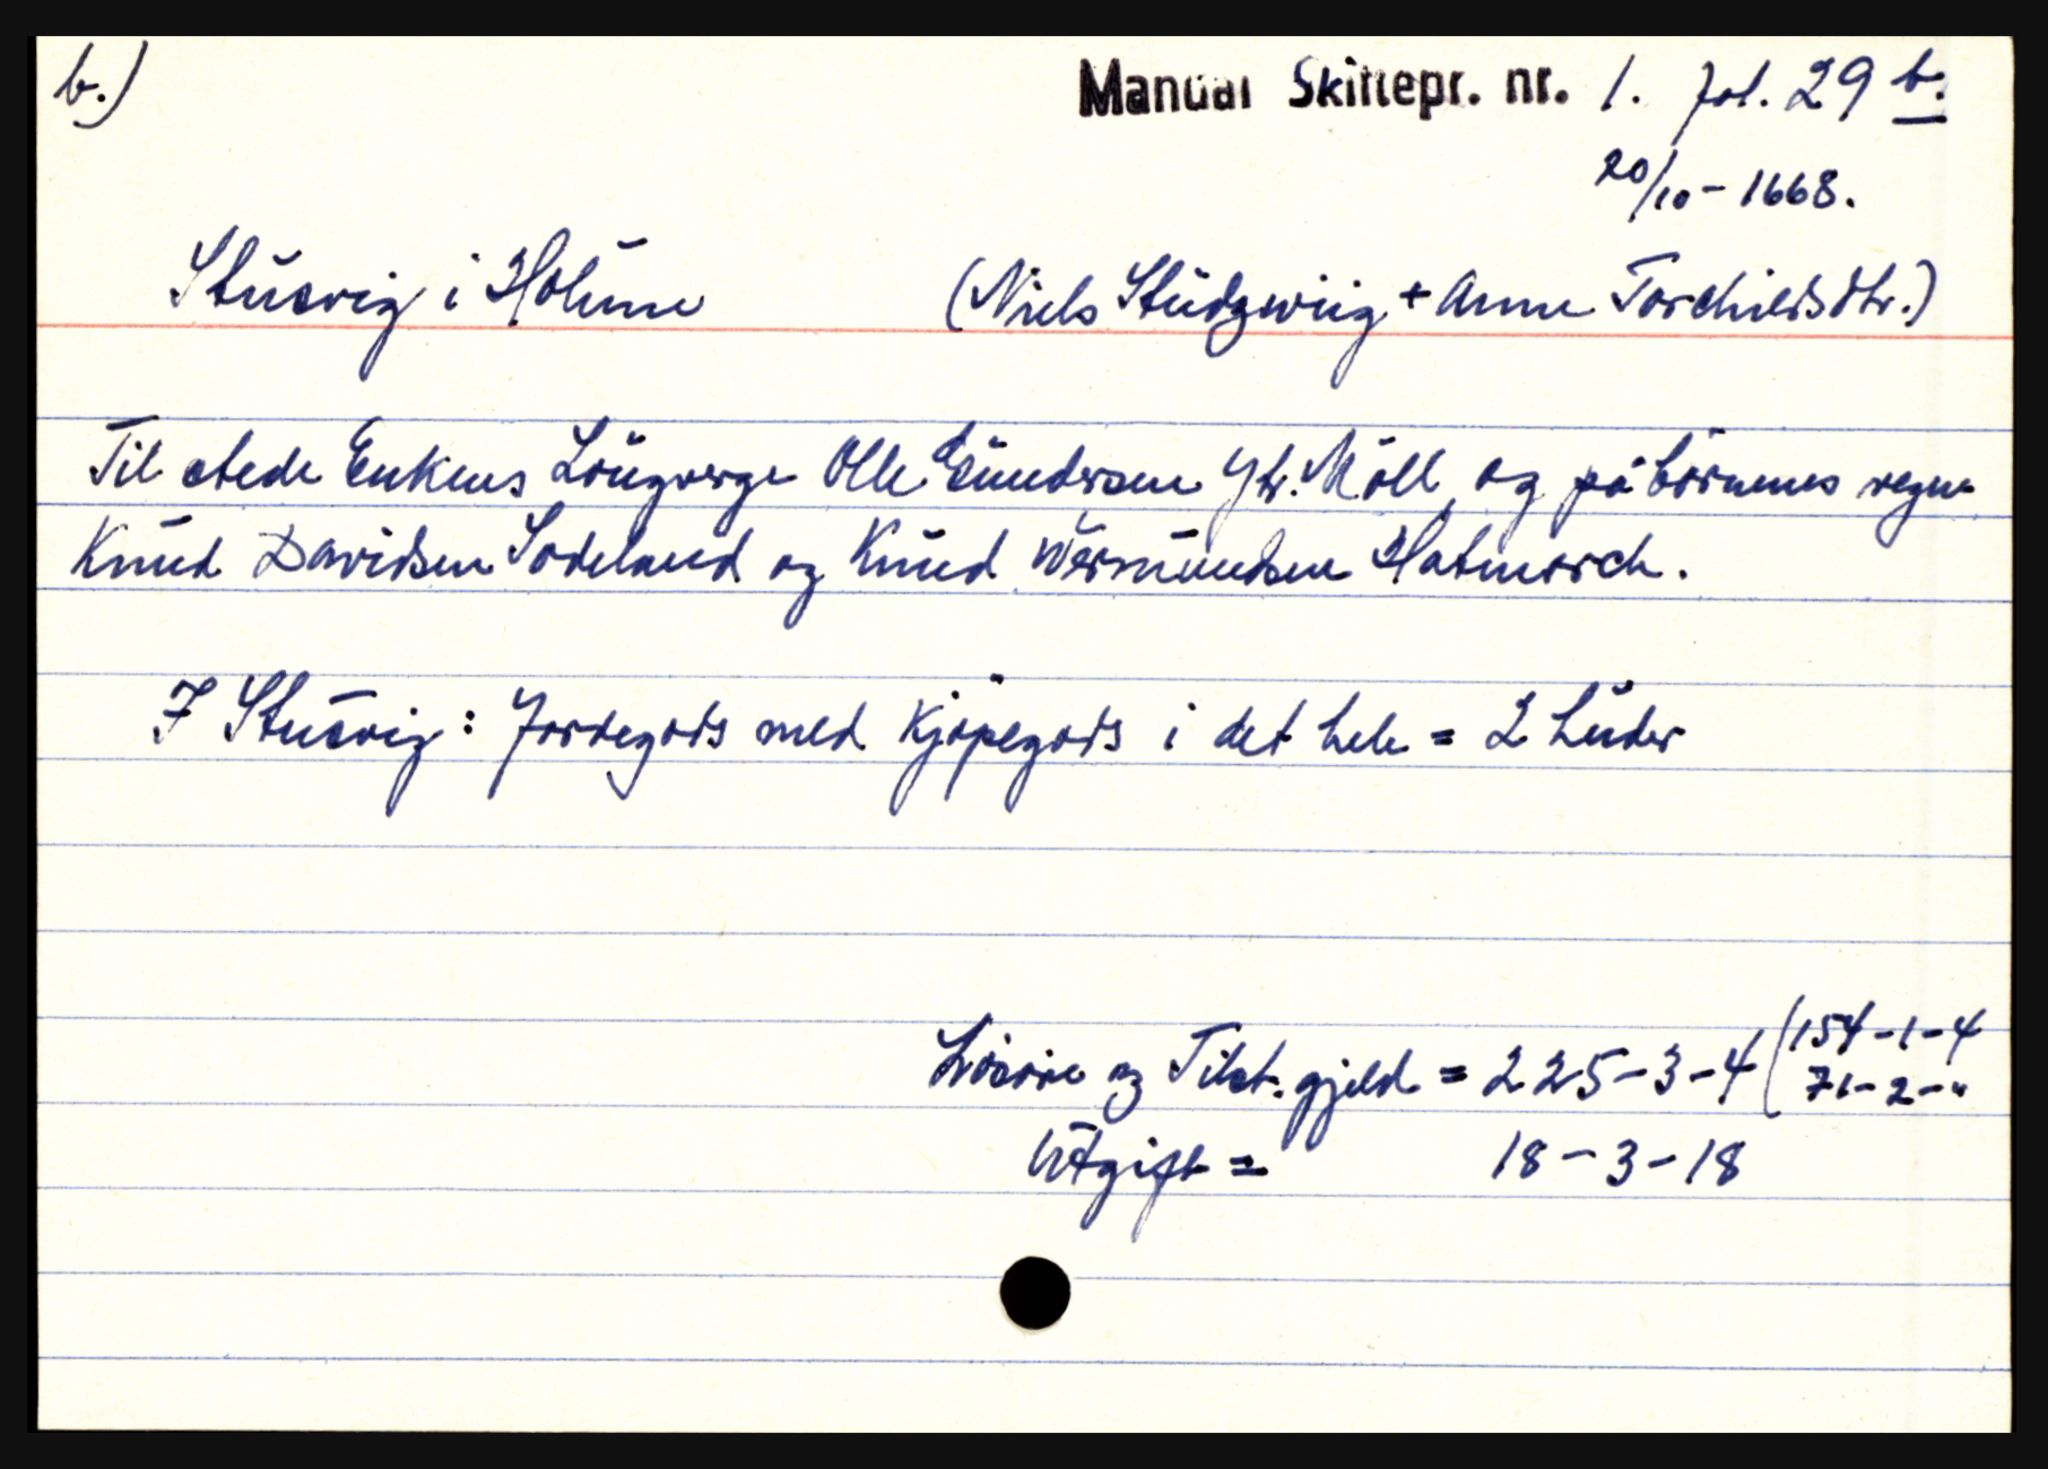 b.)
Manual Skiftepr. nr. 1. fol. 29 b.
20/10 - 1668.
Stusvig i Holume (Niels Stüdzwiig + Anne Torchildsdtr.)
Til stede Enkens Lougverge Olle Gundersen Ytr. Möll, og på börnenes regne
Knud Davidsen Sodeland og Knud Wermundsen Hatmarch.
I Stusvig: Jordegods med Kjöpegods i det hele = 2 huder
Lösöre og Tilst. gjeld = 225-3-4 (154-1-4
71-2-"
Utgift = 18-3-18